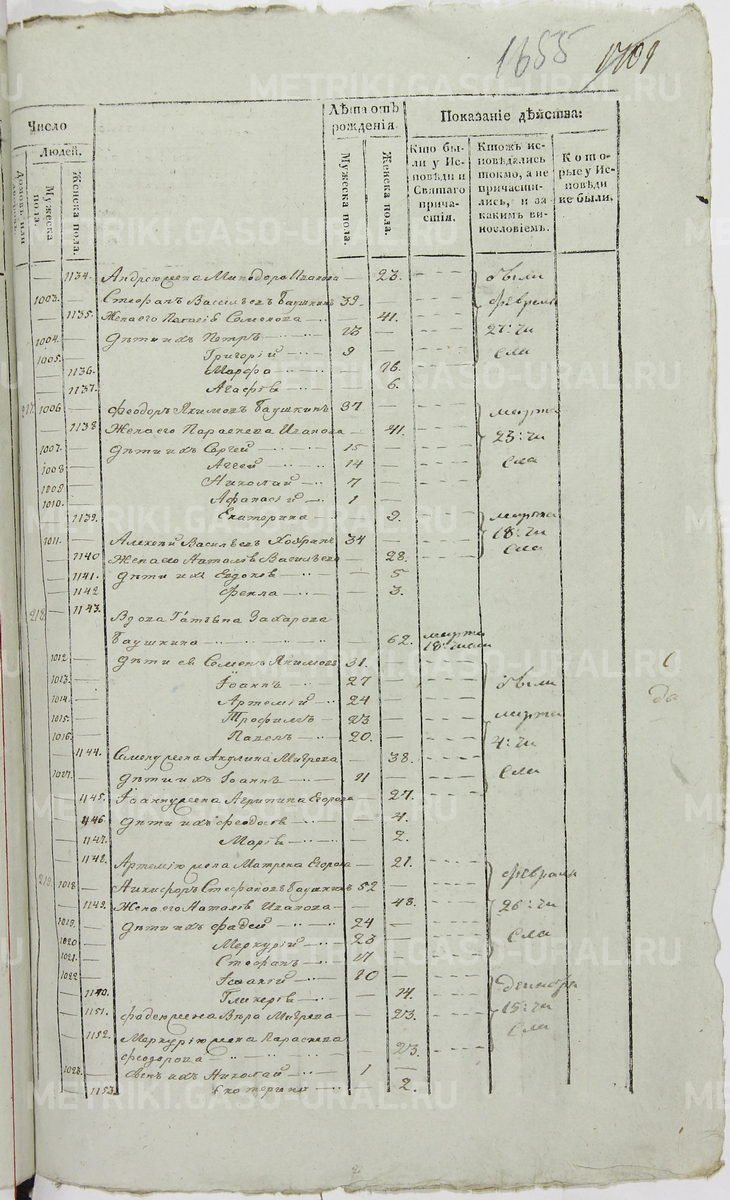 1655 1709
Число
Людей.
Домовъ или
Мужеска пола.
Женска пола.
Лѣта отъ рожденія
Мужеска пола.
Женска пола.
Показаніе дѣйства:
Кто были у Исповѣди и Святаго причастія.
Ктожъ исповѣдались токмо, а не причастились, и за какимъ винословіемъ.
Которые у Исповѣди не были.
1134. Андрею жена Минодора Иванова — 23. были
1003. Стефанъ Васильевъ Баушкинъ 39 — февраля
1135. Жена его Пелагія Семенова — 41. 27: чи
1004. Дѣти ихъ Петръ 13 —
1005. Григорій 9 — сла
1136. Марфа — 16.
1137. Агафія — 6.
217. 1006 Феодоръ Якимовъ Баушкинъ 37 — марта
1138 Жена его Параскева Иванова — 41. 23: чи
1007. Дѣти ихъ Сергей 15 —
1008. Аггей 14 — сла
1009. Николай 7 —
1010. Афанасій 1 —
1139. Екатерина — 9. марта
1011. Алексей Васильевъ 34 — 18: чи
1140 Жена его Наталія Васильева — 28. сла
1141. Дѣти ихъ Евдокія — 5
1142 Фекла — 3.
218. 1143. Вдова Татьяна Захарова
Баушкина — 62. марта 18
1012 Дѣти ея Семенъ Якимовъ 31. —
1013. Іоаннъ 27 — были
1014. Артемій 24 —
1015. Трофимъ 23 — марта
1016. Павелъ 20. — 4: чи
1144. Семену жена Акулина — 38.
1017. Дѣти ихъ Іоаннъ 11 — сла
1145. Іоанну жена Агрипина Егорова — 27.
1146. Дѣти ихъ Феодосія — 4.
1147. Марія — 2.
1148. Артемію жена Матрена Егорова — 21. февраля
219. 1018. Никифоръ Стефановъ Баушкинъ 52 —
1149. Жена его Наталія Иванова — 48. 26: чи
1019. Дѣти ихъ Фадей 24 —
1020 Меркурій 23 — сла
1021. Стефанъ 17 —
1022. 10 —
1140. Гликерія — 14. декабря
1151. Фадею жена Вѣра — 23. 15: чи
1152. Меркурію жена Параскева сла
Феодорова — 23.
1023. Николай 1 —
1153 Екатерина — 2.
да
METRIKI.GASO-URAL.RU